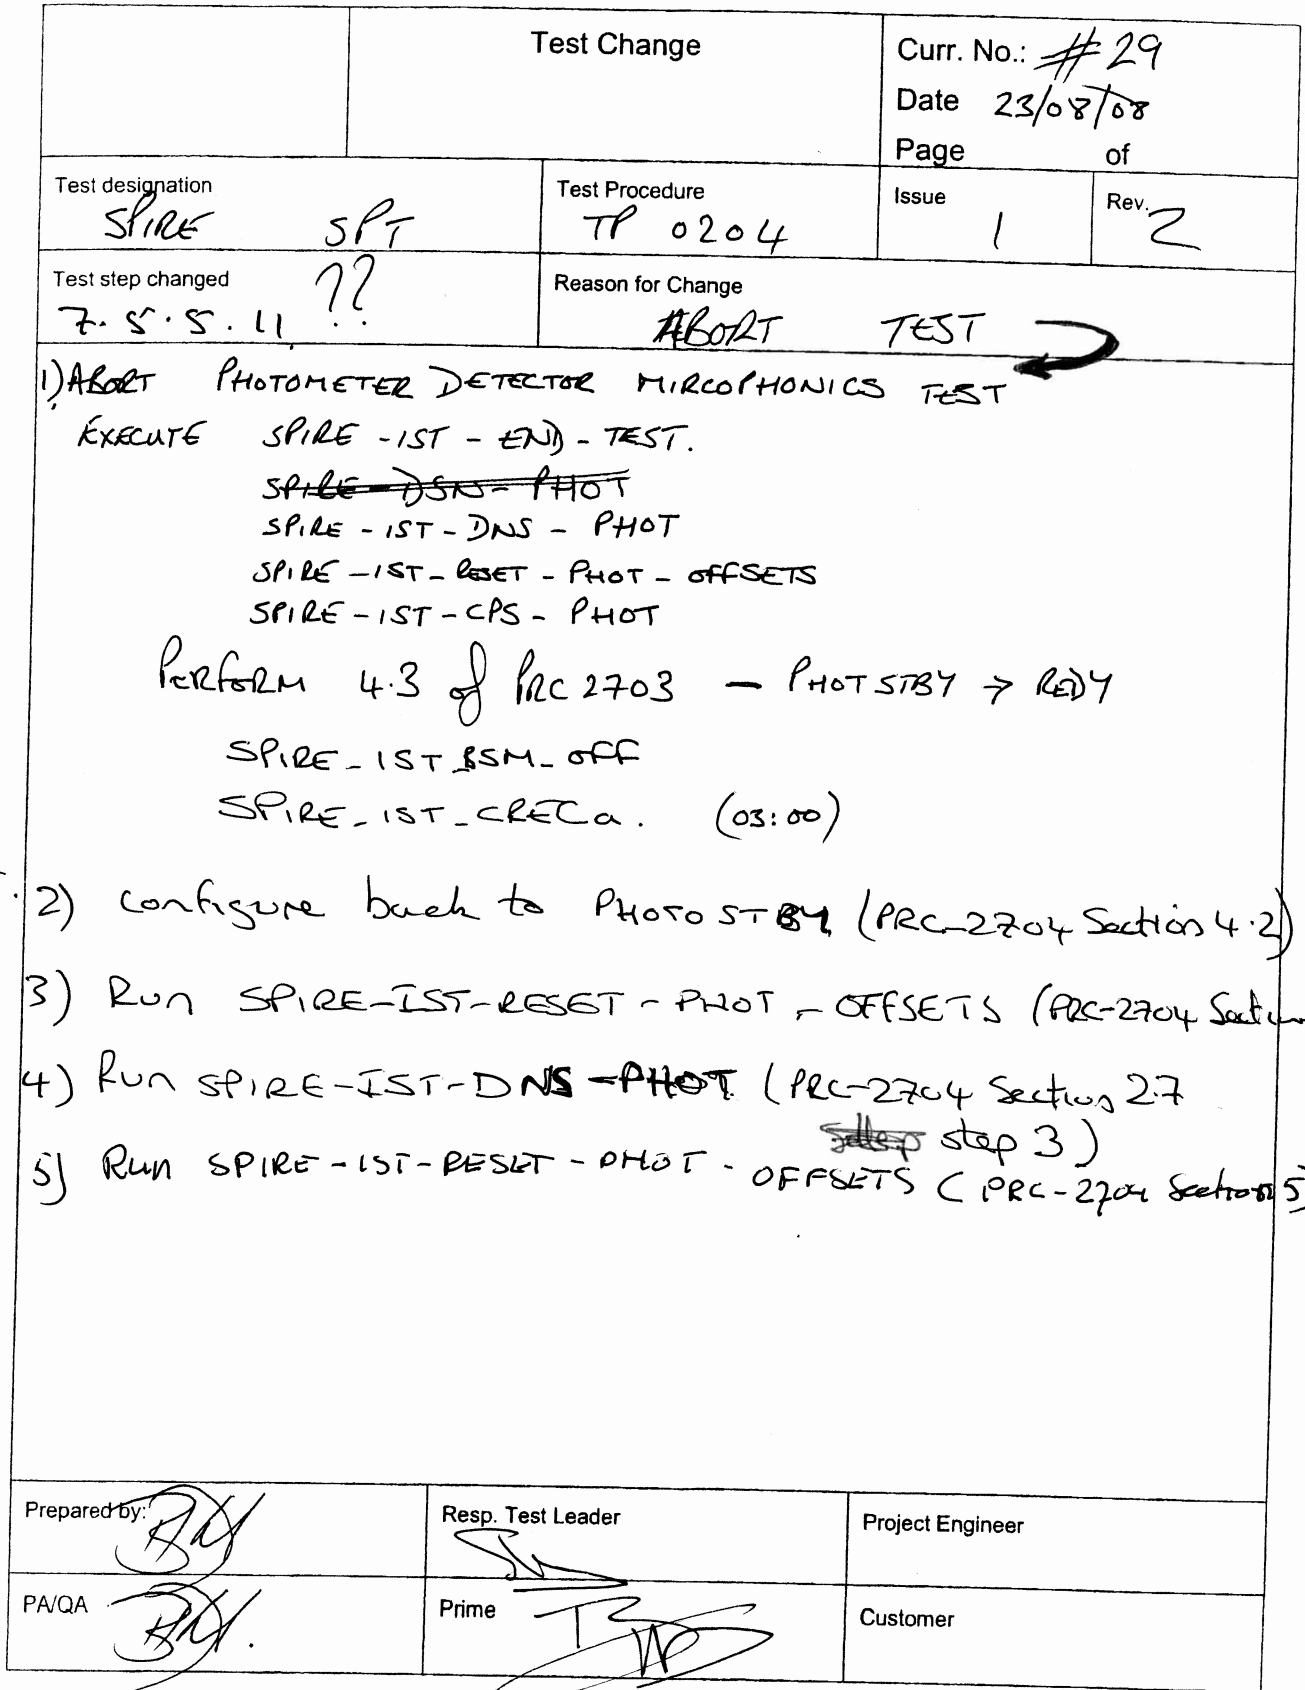 Test Change
Curr. No.: #29
Date 23/08/08
Page of
Test designation
SPIRE SPT
Test Procedure
TP 0204
Issue
1
Rev.
2
Test step changed
7.5.5.11 ??
Reason for Change
ABORT TEST
1) ABORT PHOTOMETER DETECTOR MIRCOPHONICS TEST
EXECUTE SPIRE - IST - END - TEST.
SPIRE - DSN - PHOT
SPIRE - IST - DNS - PHOT
SPIRE - IST - RESET - PHOT - OFFSETS
SPIRE - IST - CPS - PHOT
PERFORM 4.3 of PRC 2703 — PHOT STBY → REDY
SPIRE_IST_BSM_OFF
SPIRE_IST_CREC a. (03:00)
2) configure back to PHOTO STBY (PRC-2704 Section 4.2)
3) Run SPIRE-IST-RESET-PHOT-OFFSETS (PRC-2704 Section
4) Run SPIRE-IST-DNS-PHOT (PRC-2704 Section 2.7
step 3)
5) Run SPIRE-IST-RESET-PHOT-OFFSETS (PRC-2704 Section 5)
Prepared by:
Resp. Test Leader
Project Engineer
PA/QA
Prime
Customer